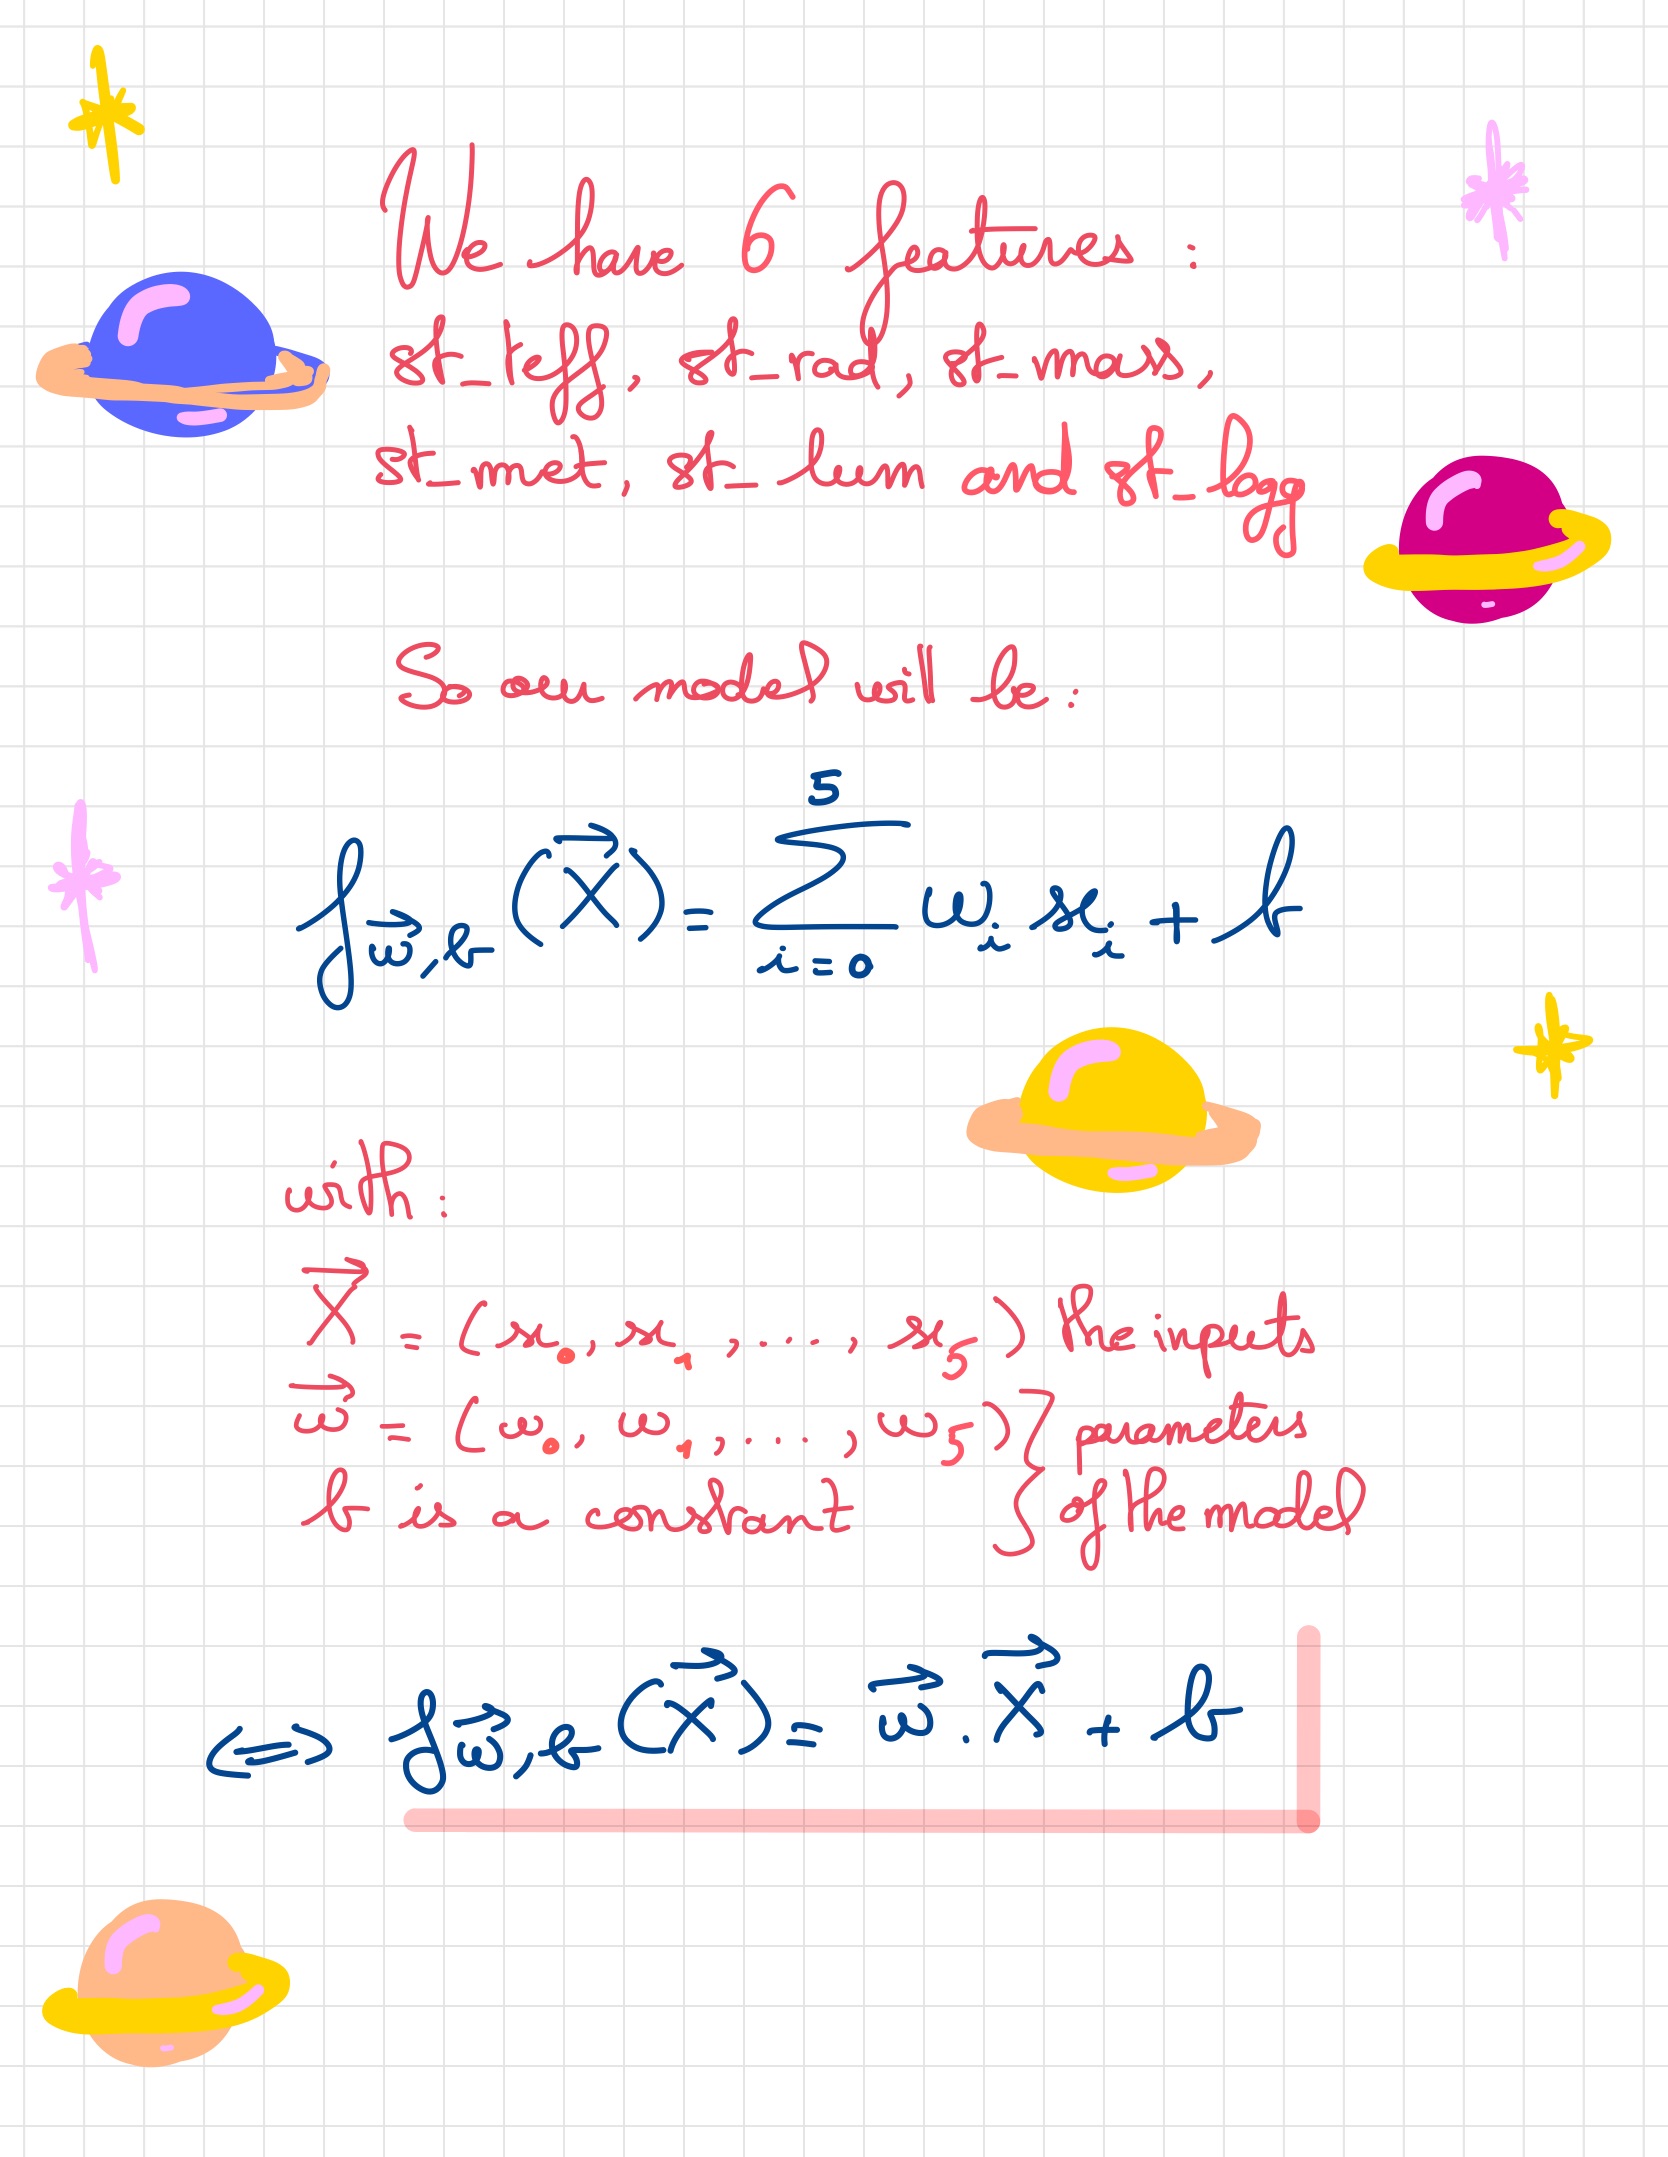 We have 6 features :
st_teff, st_rad, st_mass,
st_met, st_lum and st_logg
So our model will be :
f_{\vec{w},b}(\vec{X}) = \sum_{i=0}^{5} w_i x_i + b
with :
\vec{X} = (x_0, x_1, ..., x_5) the inputs
\vec{w} = (w_0, w_1, ..., w_5) } parameters
b is a constant } of the model
⇔ f_{\vec{w},b}(\vec{X}) = \vec{w} . \vec{X} + b